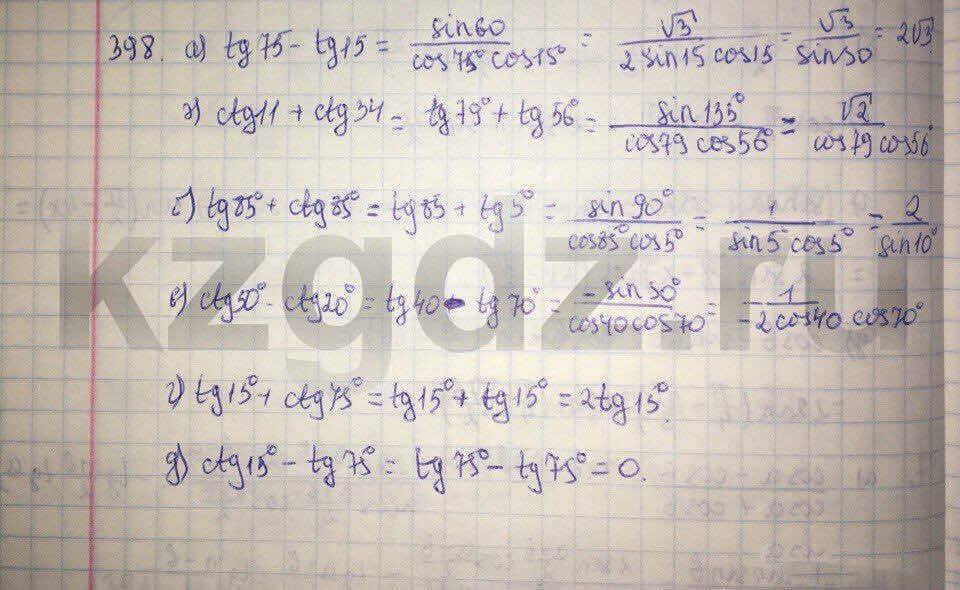 398. а) tg 75 - tg 15 = sin 60 / cos 75° cos 15° = √3 / 2 sin 15 cos 15 = √3 / sin 30 = 2√3
ctg 11 + ctg 34 = tg 79° + tg 56° = sin 135° / cos 79 cos 56° = √2 / cos 79 cos 56°
tg 85° + ctg 85° = tg 85 + tg 5° = sin 90° / cos 85° cos 5° = 1 / sin 5° cos 5° = 2 / sin 10°
ctg 50° - ctg 20° = tg 40 - tg 70° = -sin 30° / cos 40 cos 70° = 1 / -2 cos 40 cos 70°
г) tg 15° + ctg 75° = tg 15° + tg 15° = 2 tg 15°.
д) ctg 15° - tg 75° = tg 75° - tg 75° = 0.
kzgdz.ru